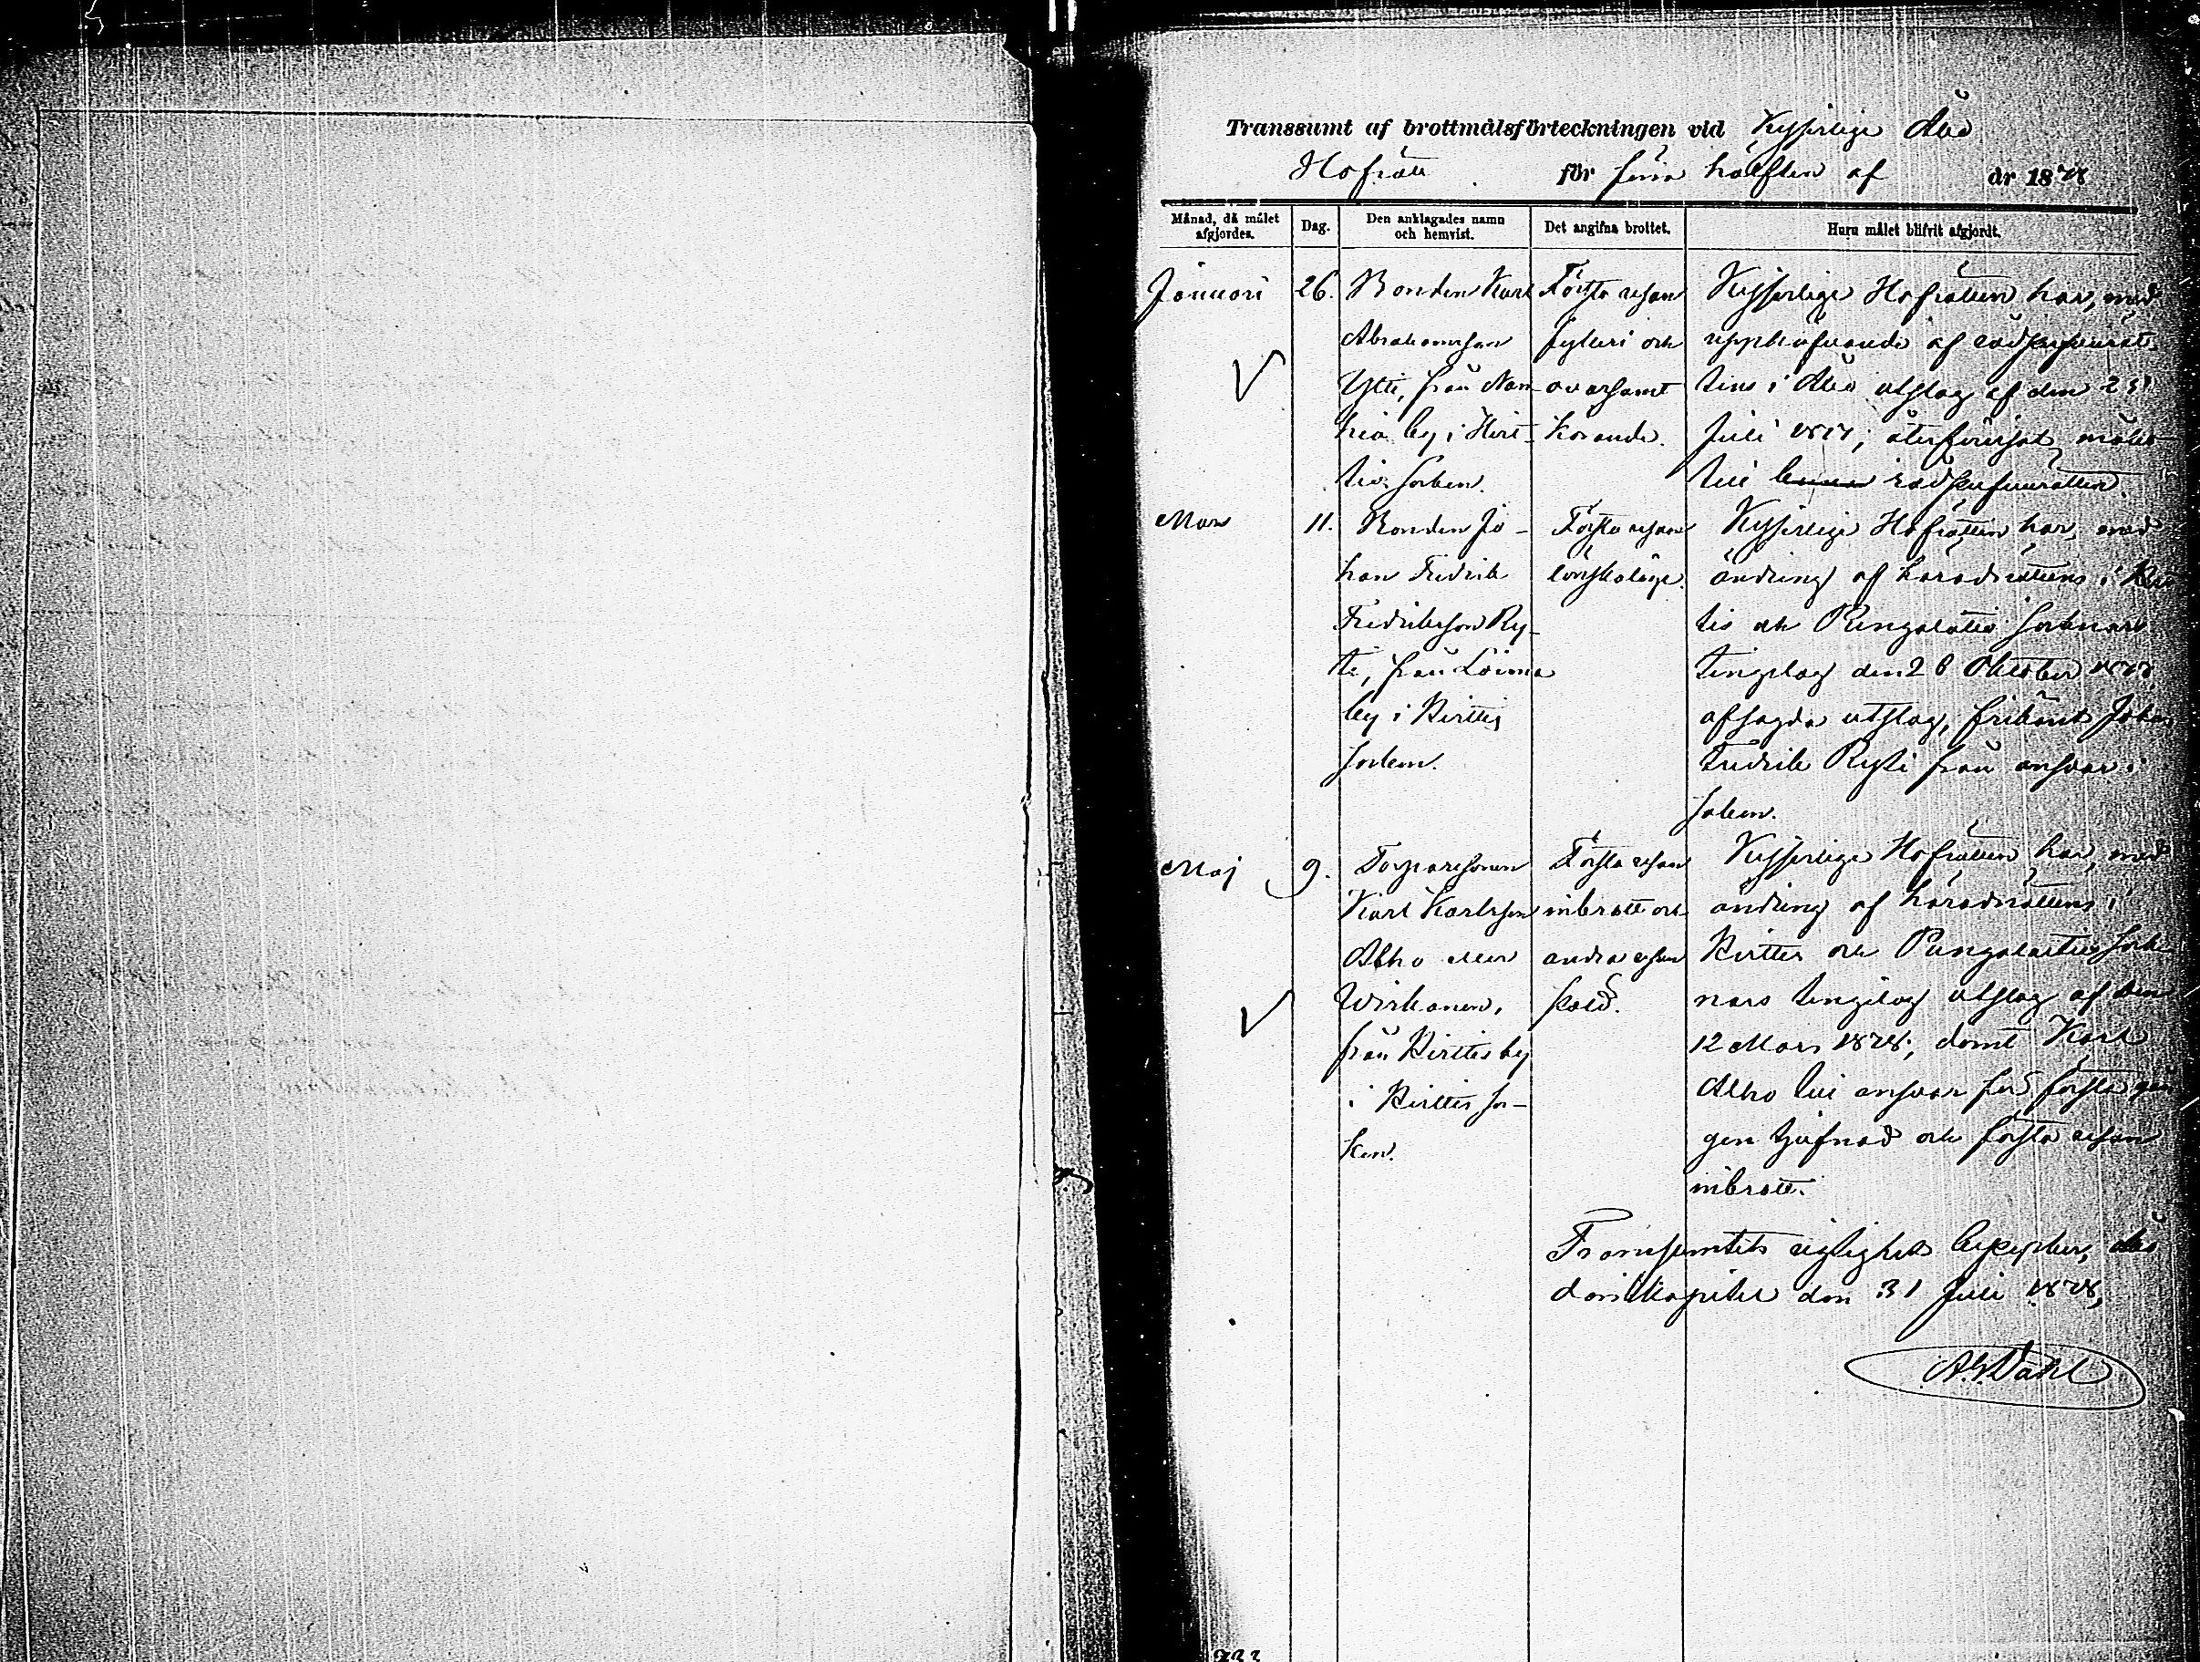 Transsumt af brottmålsförteckningen vid Kejserliga Åbo
Hofrätt för förra hälften af år 1878
Månad, då målet afgjordes.
Dag.
Den anklagades namn och hemvist.
Det angifna brottet.
Huru målet blifvit afgjordt.
Januari 26.
Bonden Karl
Abrahamsson
Ytti, från Nan
hia by i Kirt-
tis socken.
Första resan
fylleri och
ovarsamt
körande.
Kejserliga Hofrätten har, med
upphäfvande af rådstufvurät-
tens i Åbo utslag af den
Juli 1877, återförvisat målet
till rådstufvurätten.
Mars 11.
Bonden Jo-
han Fredrik
Fredriksson Ry-
ti, från Loima
by i Kirttis
socken.
Första resan
lönskaläge.
Kejserliga Hofrätten har, med
ändring af häradsrättens i
tis och Pungalaitio socknars
tingslag den 28 Oktober 1877
afsagda utslag, frikänt Johan
Fredrik Ryti från ansvar i
saken.
Maj 9.
Torparesonen
Karl Karlsson
Alho eller
Wirkanen,
från Kirttis by
i Kirttis soc-
ken.
Första resan
inbrott och
andra resan
stöld.
Kejserliga Hofrätten har, med
ändring af häradsrättens i
Kirttis och Pungalaitio sock-
nars tingslag utslag af den
12 Mars 1878, dömt Karl
Alho till ansvar för första gån
gen tjufnad och första resan
inbrott.
Transsumtets riktighet bekräftar, Åbo
domkapitel den 31 Juli 1878,
Dahl